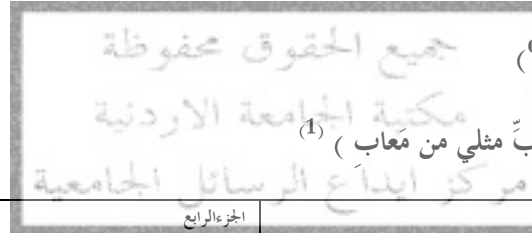 جميع الحقوق محفوظة
مكتبة الجامعة الاردنية
مثلي من مَعابِ ) (1)
مركز ايداع الرسائل الجامعية
الجزء الرابع